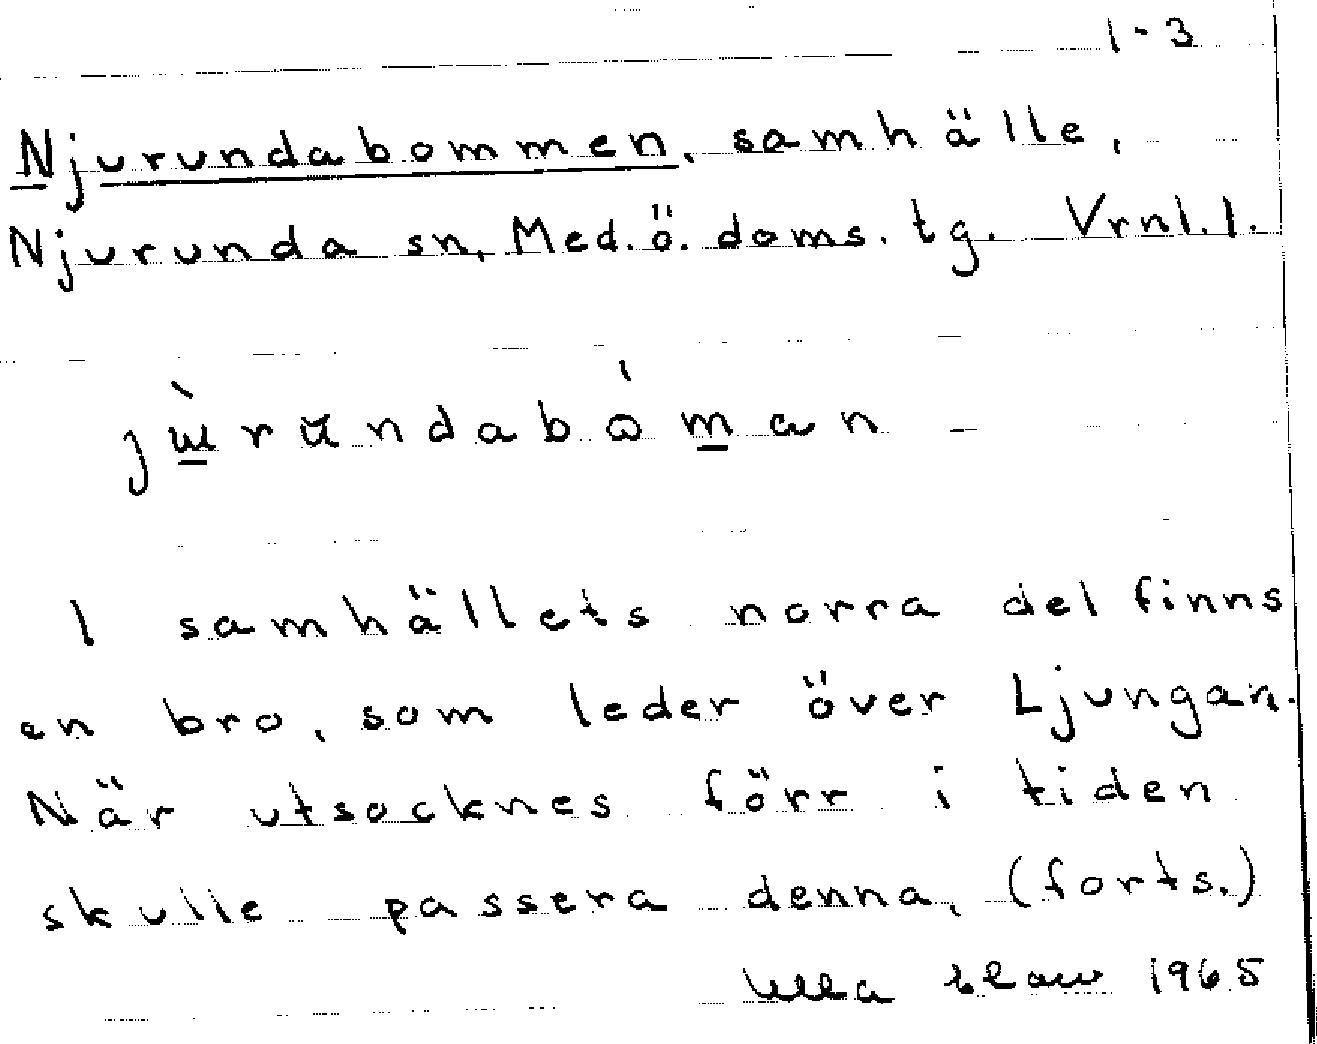 1-3
Njurundabommen, samhälle,
Njurunda sn, Med. ö. doms. tg. Vrnl. l.
I samhällets norra del finns
en bro, som leder över Ljungan.
När utsocknes förr i tiden
skulle passera denna, (forts.)
Ulla 1965